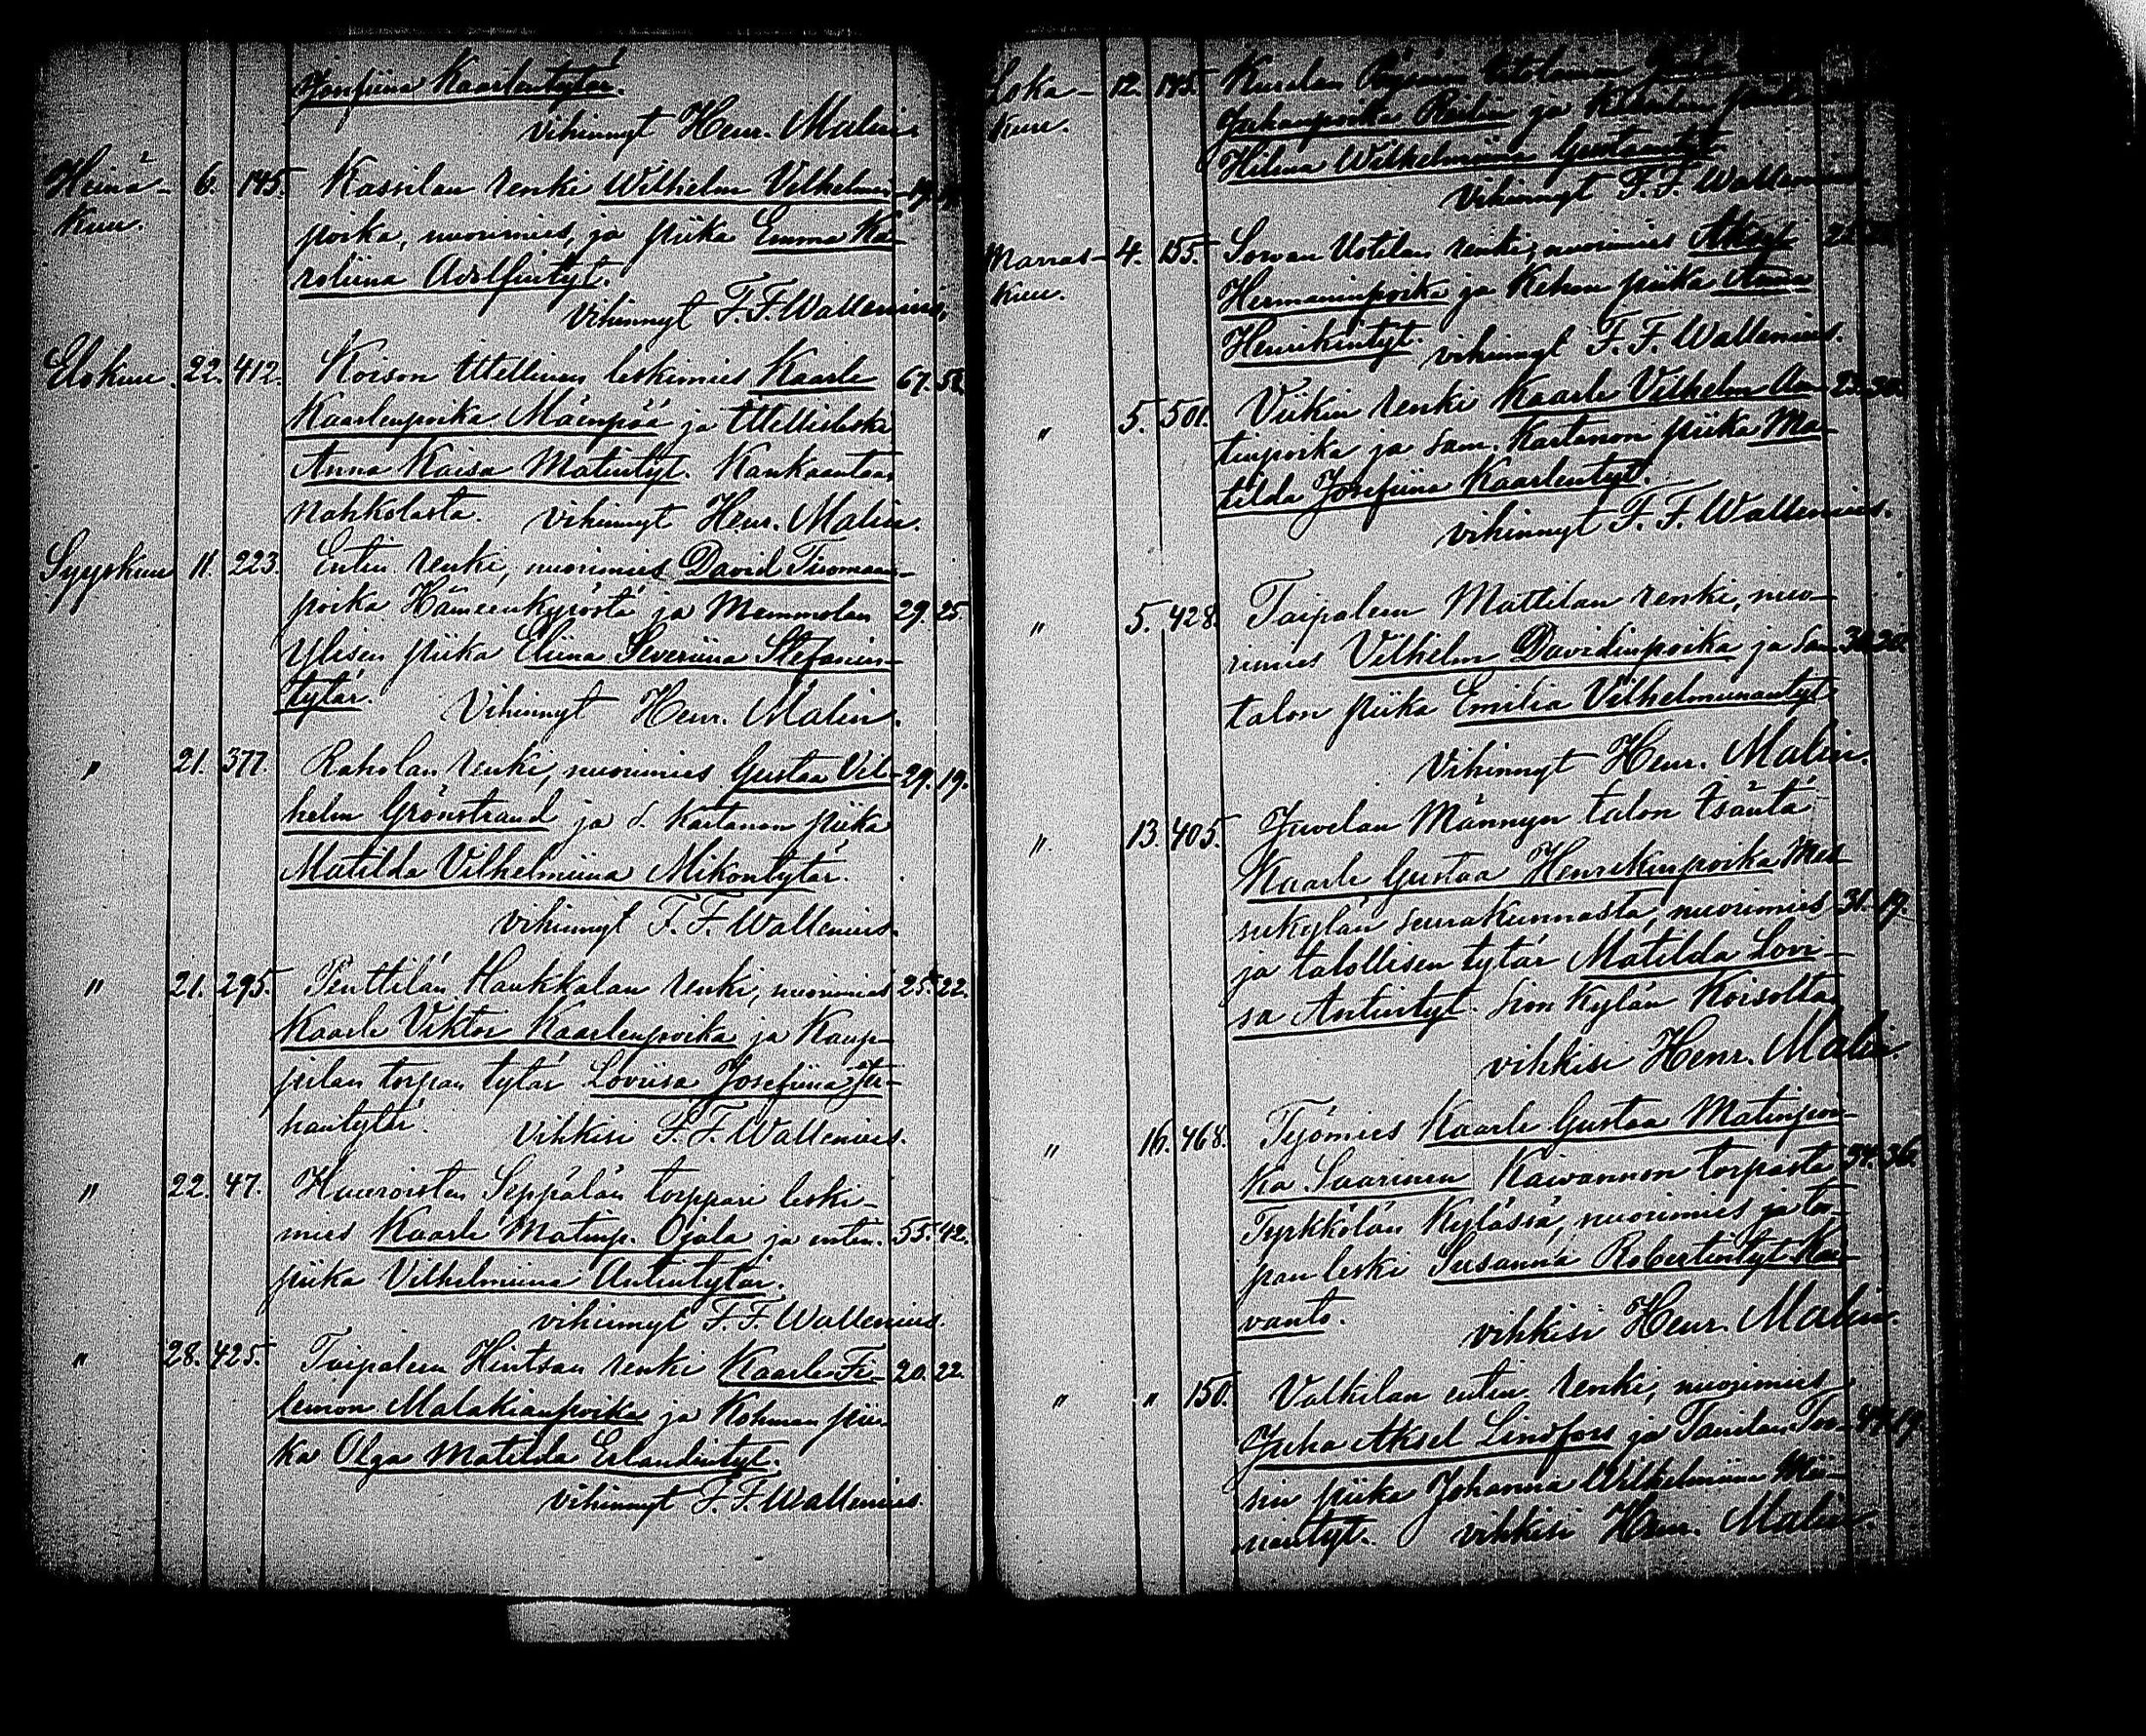 Josefiina Kaarlentytär.
vihinnyt Henr. Malin.
Heinä- 6. 145. Kassilan renki Wilhelm Vilhelmin- 19.
Kuu. poika, nuorimies, ja piika Emma Ka-
roliina Adolfintyt.
Vihinnyt F. F. Wallenius.
Elokuu. 22. 412. Koison Itellinen leskimies Kaarle 67. 58.
Kaarlenpoika Mäenpää ja Itellisleski
Anna Kaisa Matintyt. Kankaantaan
Nahkolasta. Vihinnyt Henr. Malin.
Syyskuu 11. 223. Entin. renki, nuorimies David Tuomaan-
poika Hämeenkyröstä ja Mommolan 29. 25.
Ylisen piika Eliina Severiina Stefanin-
tytär. Vihinnyt Henr. Malin.
" 21. 377. Raholan renki, nuorimies Gustaa Vil- 29. 19.
helm Grönstrand ja s. Kartanon piika
Matilda Vilhelmiina Mikontytär.
vihinnyt F. F. Wallenius.
" 21. 295. Penttilän Haukkalan renki, nuorimies 25. 22.
Kaarle Viktor Kaarlenpoika ja Kaup-
pilan torpan tytär Loviisa Josefiina Ju-
hantytär. Vihkisi F. F. Wallenius.
" 22. 47. Huuroisten Seppälän torppari leski-
mies Kaarle Matinp. Ojala ja entin. 55. 42.
piika Vilhelmiina Antintytär.
vihinnyt F. F. Wallenius.
" 28. 425. Taipaleen Hintsan renki Kaarle Fi- 20. 22.
lemon Malakianpoika ja Kohman pii-
ka Olga Matilda Erlandintyt.
vihinnyt F. F. Wallenius.
Loka- 12. 145. Kurilan
Kuu. Juhanpoika ja
Hilma Wilhelmiina Gustaantyt
Vihinnyt F. F. Wallenius
Marras- 4. 155. Sorvan Uotilan renki, nuorimies Aksel
Kuu. Hermanninpoika ja Kehon piika Anna
Henrikintyt. vihinnyt F. F. Wallenius.
" 5. 501. Viikin renki Kaarle Vilhelm An- 23. 30.
tinpoika ja sam. Kartanon piika Ma-
tilda Josefiina Kaarlentyt.
vihinnyt F. F. Wallenius.
" 5. 428. Taipaleen Mattilan renki, nuo-
rimies Vilhelm Davidinpoika ja sam. 30. 30.
talon piika Emilia Vilhelmiinantyt
Vihinnyt Henr. Malin.
" 13. 405. Juvelan Männyn talon Isäntä
Kaarle Gustaa Henrikinpoika Mes-
sukylän seurakunnasta, nuorimies 31. 19.
ja talollisen tytär Matilda Lovi-
sa Antintyt. Sion Kylän Koisolta
vihkisi Henr. Malin.
" 16. 468. Työmies Kaarle Gustaa Matinpoi-
ka Saarinen Kaivannon torpasta 34. 36.
Tyrkkölän Kylässä, nuorimies ja tor-
pan leski Susanna Robertintyt Kai-
vanto. vihkisi Henr. Malin.
" " 150. Valkilan entin. renki, nuorimies
Juha Aksel Lindfors ja Tanilan Tor-
sin piika Johanna Wilhelmiina Mii-
nantyt. vihkisi Henr. Malin.